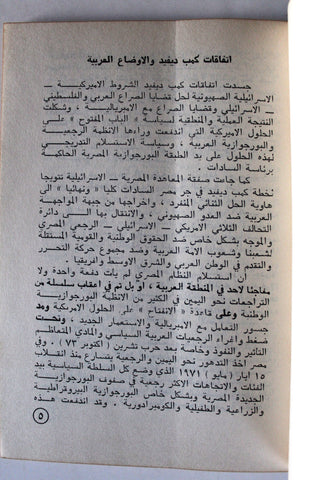 اتفاقات كمب ديفيد والاوضاع العربية
جسدت اتفاقات كمب ديفيد الشروط الاميركية ــ
الاسرائيلية الصهيونية لحل قضايا الصراع العربي والفلسطيني
ــ الاسرائيلي وقضايا الصراع مع الامبريالية ، وشكلت
النتيجة العملية والمنطقية لسياسة « الباب المفتوح » على
الحلول الاميركية التي اندفعت وراءها الانظمة الرجعية
والبورجوازية العربية ، وسياسة الاستسلام التدريجي
لهذه الحلول على يد الطبقة البورجوازية المصرية الحاكمة
برئاسة السادات .
كما جاءت صفقة المعاهدة المصرية ــ الاسرائيلية تتويجا
لخطة كمب ديفيد في جر مصر السادات كليا ونهائيا الى
هاوية الحل الثنائي المنفرد ، واخراجها من جبهة المواجهة
العربية ضد العدو الصهيوني ، والانتقال بها الى دائرة
التحالف الثلاثي الامريكي ــ الاسرائيلي ــ الرجعي المصري
والموجه بشكل خاص ضد الحقوق الوطنية والقومية المستقلة
لشعبنا وشعوب الامة العربية وضد مجموع حركة التحرر
والتقدم في الوطن العربي والشرق الاوسط وافريقيا .
ان استسلام النظام المصري لم يأت دفعة واحدة ولا
مفاجئا لاحد في المنطقة العربية ، او بل تم في اعقاب سلسلة من
التراجعات نحو اليمين في الكثير من الانظمة البورجوازية
الوطنية وعلى قاعدة « الانفتاح » على الحلول الامريكية ومد
جسور التعامل مع الامبريالية والاستعمار الجديد ، وتحت
ضغط واغراء الرجعيات العربية السياسي والمادي المتعاظم
التأثير والنفوذ وخاصة بعد حرب تشرين ( اكتوبر ٧٣ ) . وفي
مصر اخذ التدهور نحو اليمين والرجعية يتسارع منذ انقلاب
١٥ ايار ( مايو ) ١٩٧١ الذي وضع كل السلطة السياسية بيد
الفئات والاتجاهات الاكثر رجعية في صفوف البورجوازية
الجديدة المصرية وبشكل خاص البورجوازية البيروقراطية
والزراعية والطفيلية والكومبرادورية . وقد اندفعت هذه
٥